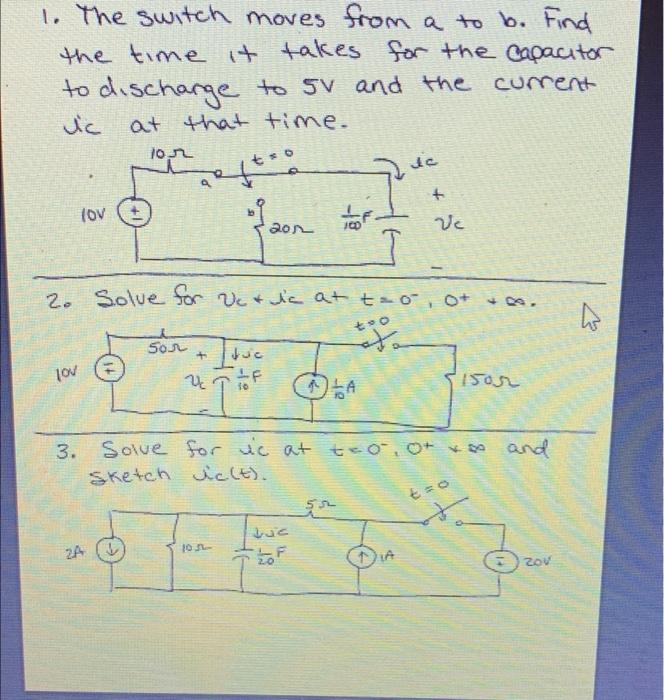 1. The switch moves from a to b. Find
the time it takes for the capacitor
to discharge to 5V and the current
ic at that time.
10Ω
t=0
ic
a
+
10V
b
20Ω
1/100 F
Vc
-
2. Solve for Vc + ic at t=0⁻, 0⁺ + ∞.
t=0
50Ω
+
ic
10V
Vc
1/10 F
1/10 A
150Ω
-
3. Solve for ic at t=0⁻, 0⁺ + ∞ and
sketch ic(t).
5Ω
t=0
ic
2A
10Ω
1/20 F
1A
20V